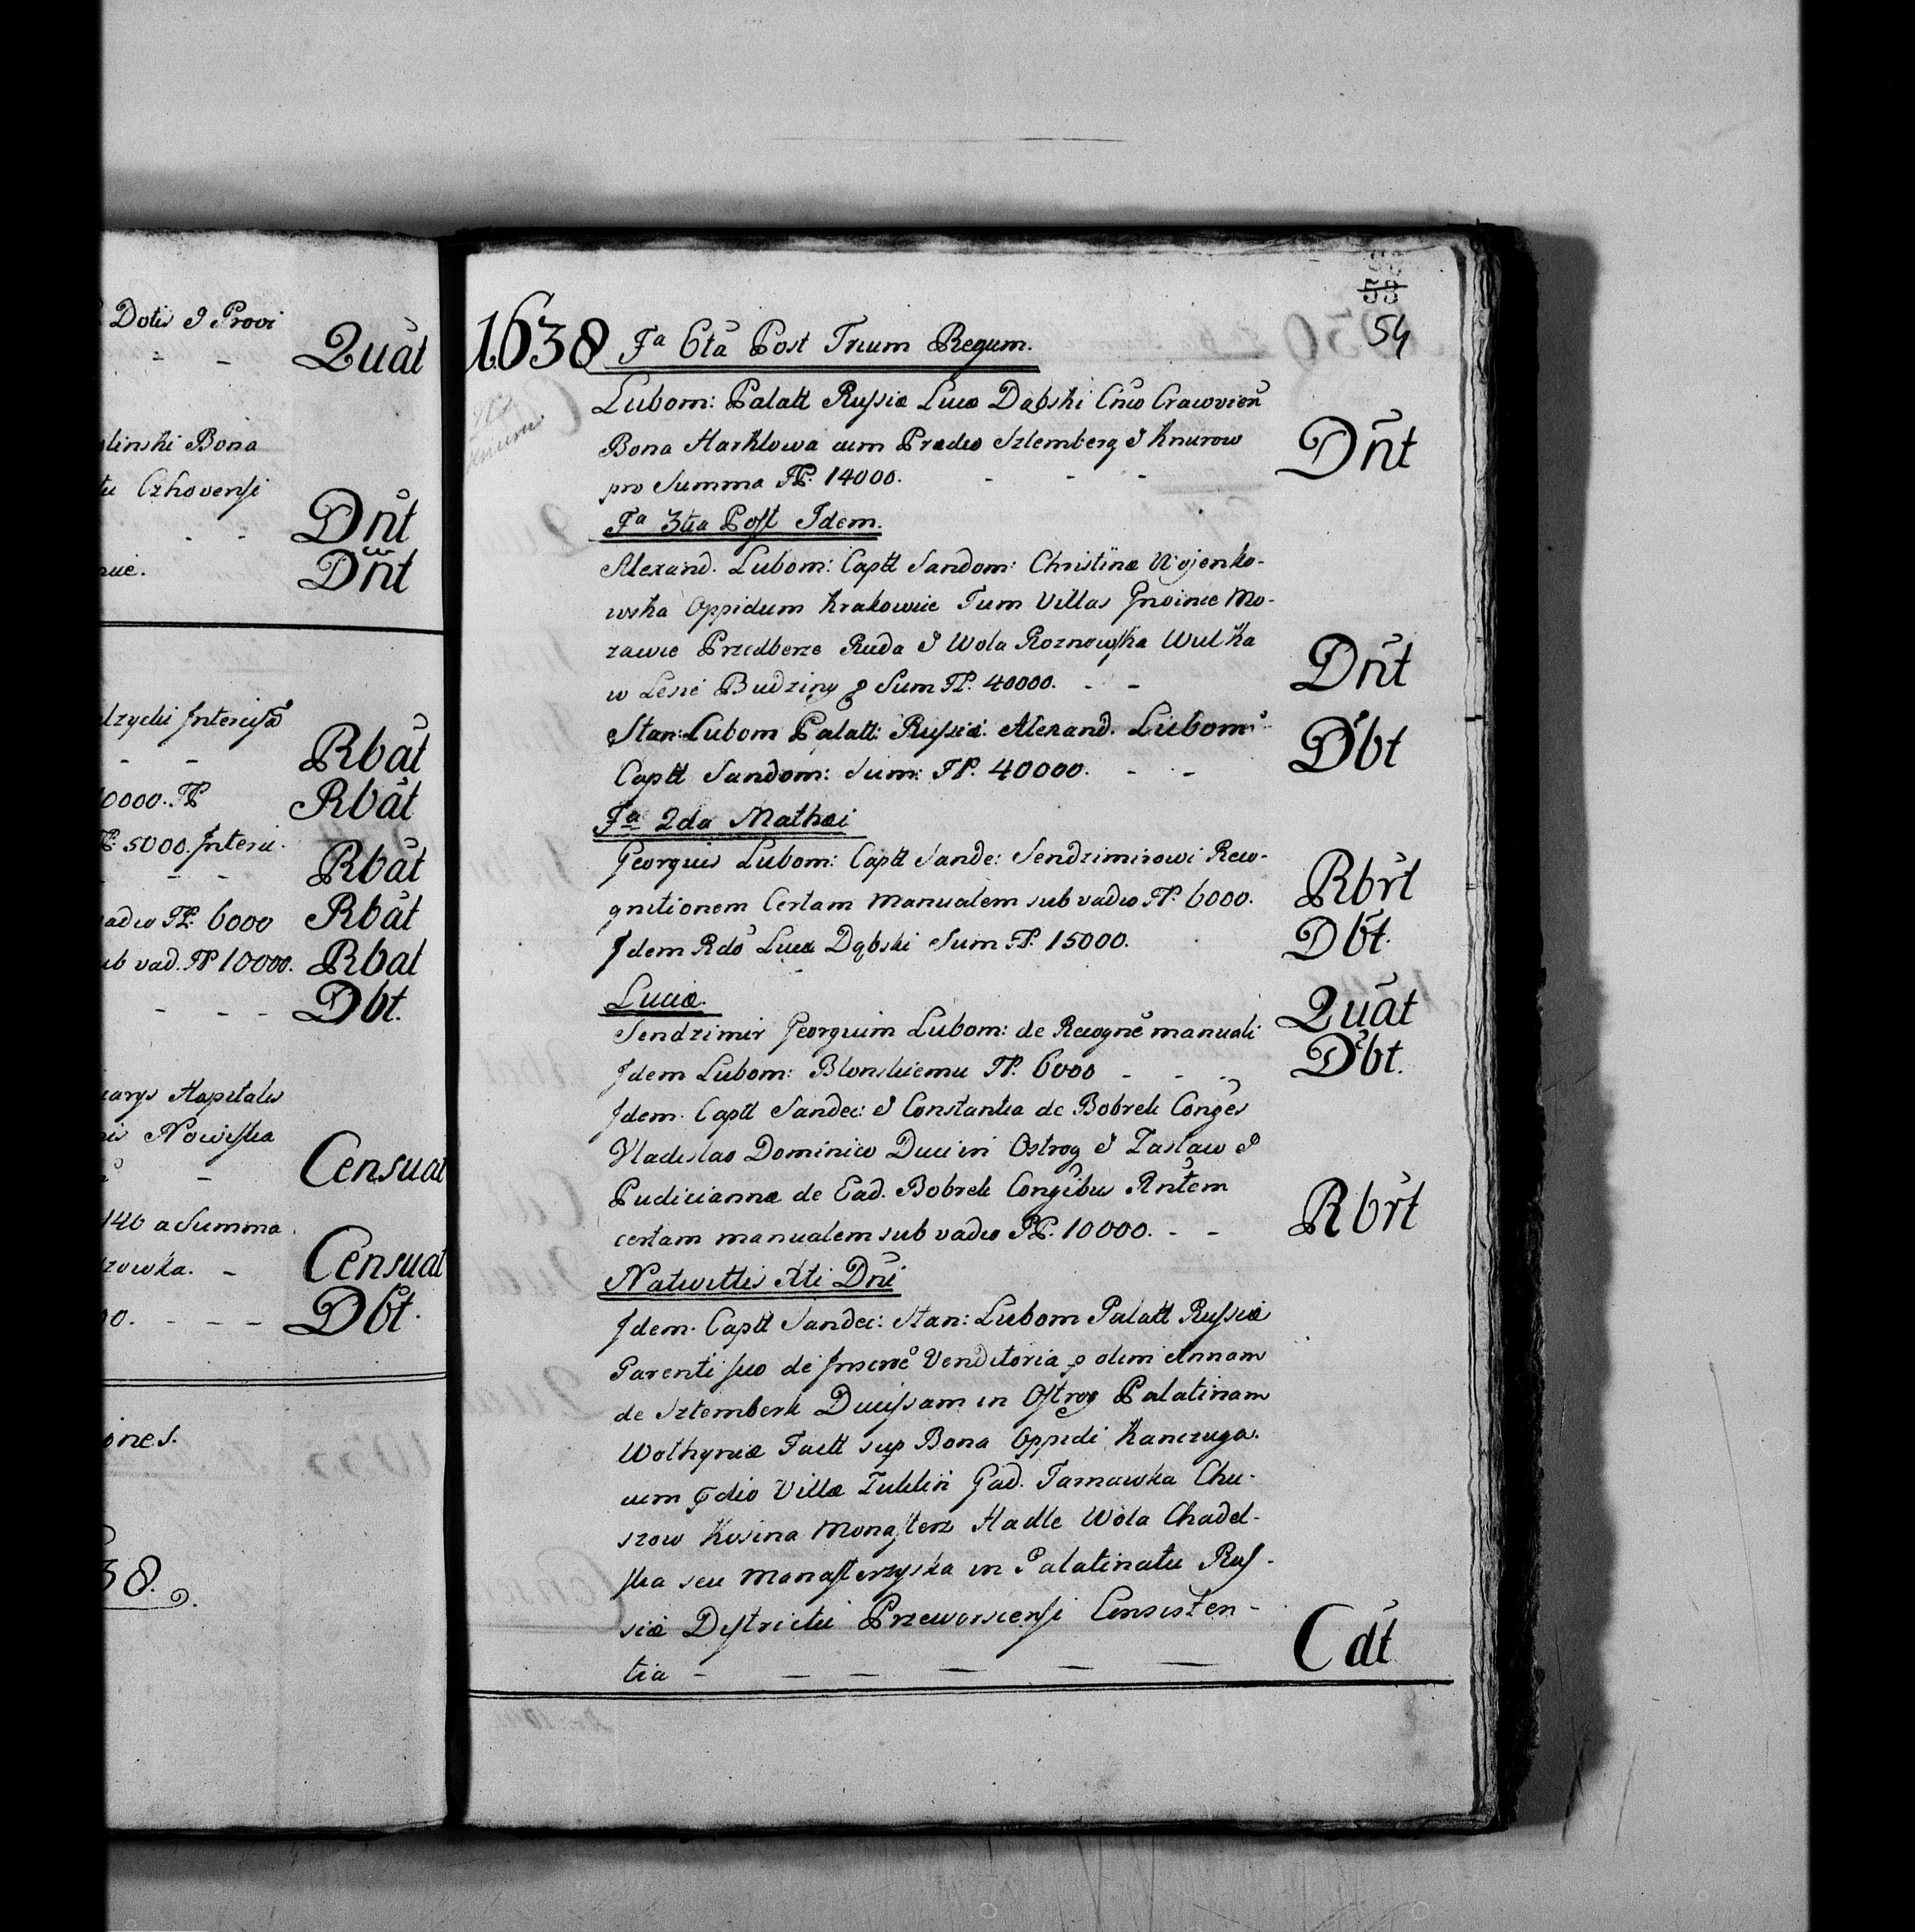 Dotis & Provi
Quat
linski Bona
tu Czhovensi
Dnt
nue.
Dnt
lzycki Intercisa
Rbat
0000. FP
Rbat
FP. 5000. Interci.
Rbat
vadio FP. 6000
Rbat
ub vad. FP 10000.
Rbat
Dbt.
iarys Hospitalis
is Nowiska
Censuat
146 a Summa
zowka.
Censuat
00.
Dbt.
ones.
38.
53
54
1638 Fa 6ta Post Trium Regum.
Lubom: Palatt Russiæ Lucæ Dąbski Cnco Cracovien
Bona Harklowa cum Prædio Szlemberg & Knurow
pro Summa FP. 14000. - - - Dnt
Fa 3tia Post Idem.
Alexand. Lubom: Captt Sandom: Christinæ Wojenko-
wska Oppidum Krakowiec Tum Villas Gnoinice Mo-
rawie Przedberze Ruda & Wola Roznowska Wulka
w Lesie Budziny Sum FP. 40000. - - Dnt
Stan: Lubom Palatt: Russiæ. Alexand. Lubom:
Captt Sandom: Sum: FP. 40000. - - Dbt
Fa 2da Mathæi
Georgius Lubom: Captt Sande: Sendzimirowi Reco-
gnitionem Certam manualem sub vadio FP. 6000. Rbrt
Idem Rdo Lucæ Dąbski Sum FP. 15000. Dbt.
Luciæ.
Sendzimir Georgium Lubom: de Recogne manuali Quat
Idem Lubom: Blonskiemu FP. 6000 - - - Dbt.
Idem. Captt Sandec: & Constantia de Bobrek Conges
Vladislao Dominico Duci in Ostrog & Zaslaw &
Pudiciannæ de Ead. Bobrek Congibus Rntem
certam manualem sub vadio FP. 10000. - - Rbrt
Nativittis Xti Dni
Idem. Captt Sandec: Stan: Lubom Palatt Russiæ
Parenti suo de Inscrne Venditoria p olim Annam
de Sztemberk Ducissam in Ostrog Palatinam
Wolhyniæ Factt sup Bona Oppidi Kanczuga.
cum pdio Villæ Gad. Tarnawka Chu-
szow Kosina Monaster Hadle Wola Chadel-
ska seu Manasterzyska in Palatinatu Rus-
siæ Districtu Przeworscensi Consisten-
tia - - - - - - Cdt